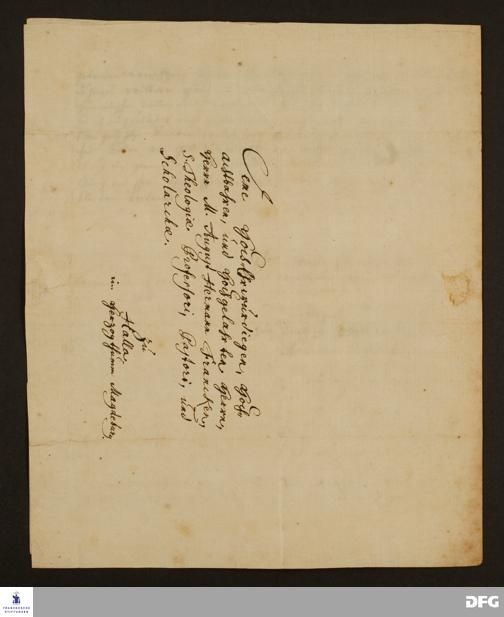 Dem HochEhrwürdigen, Hoch-
achtbahren, und Hochgelahrten Herrn,
Herrn M. August Hermann Francken,
S. Theologiæ Professori, Pastori, und
Scholarchæ.
zu
Halla
in Herzogthumb Magdeburg.
FRANCKESCHE
STIFTUNGEN
DFG